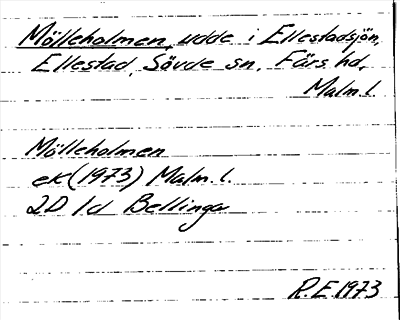 Mölleholmen, udde i Ellestadsjön,
Ellestad, Sövde sn. Färs hd.
Malm. l.
Mölleholmen
ek (1973) Malm. l.
2D 1d Bellinga
R.E. 1973